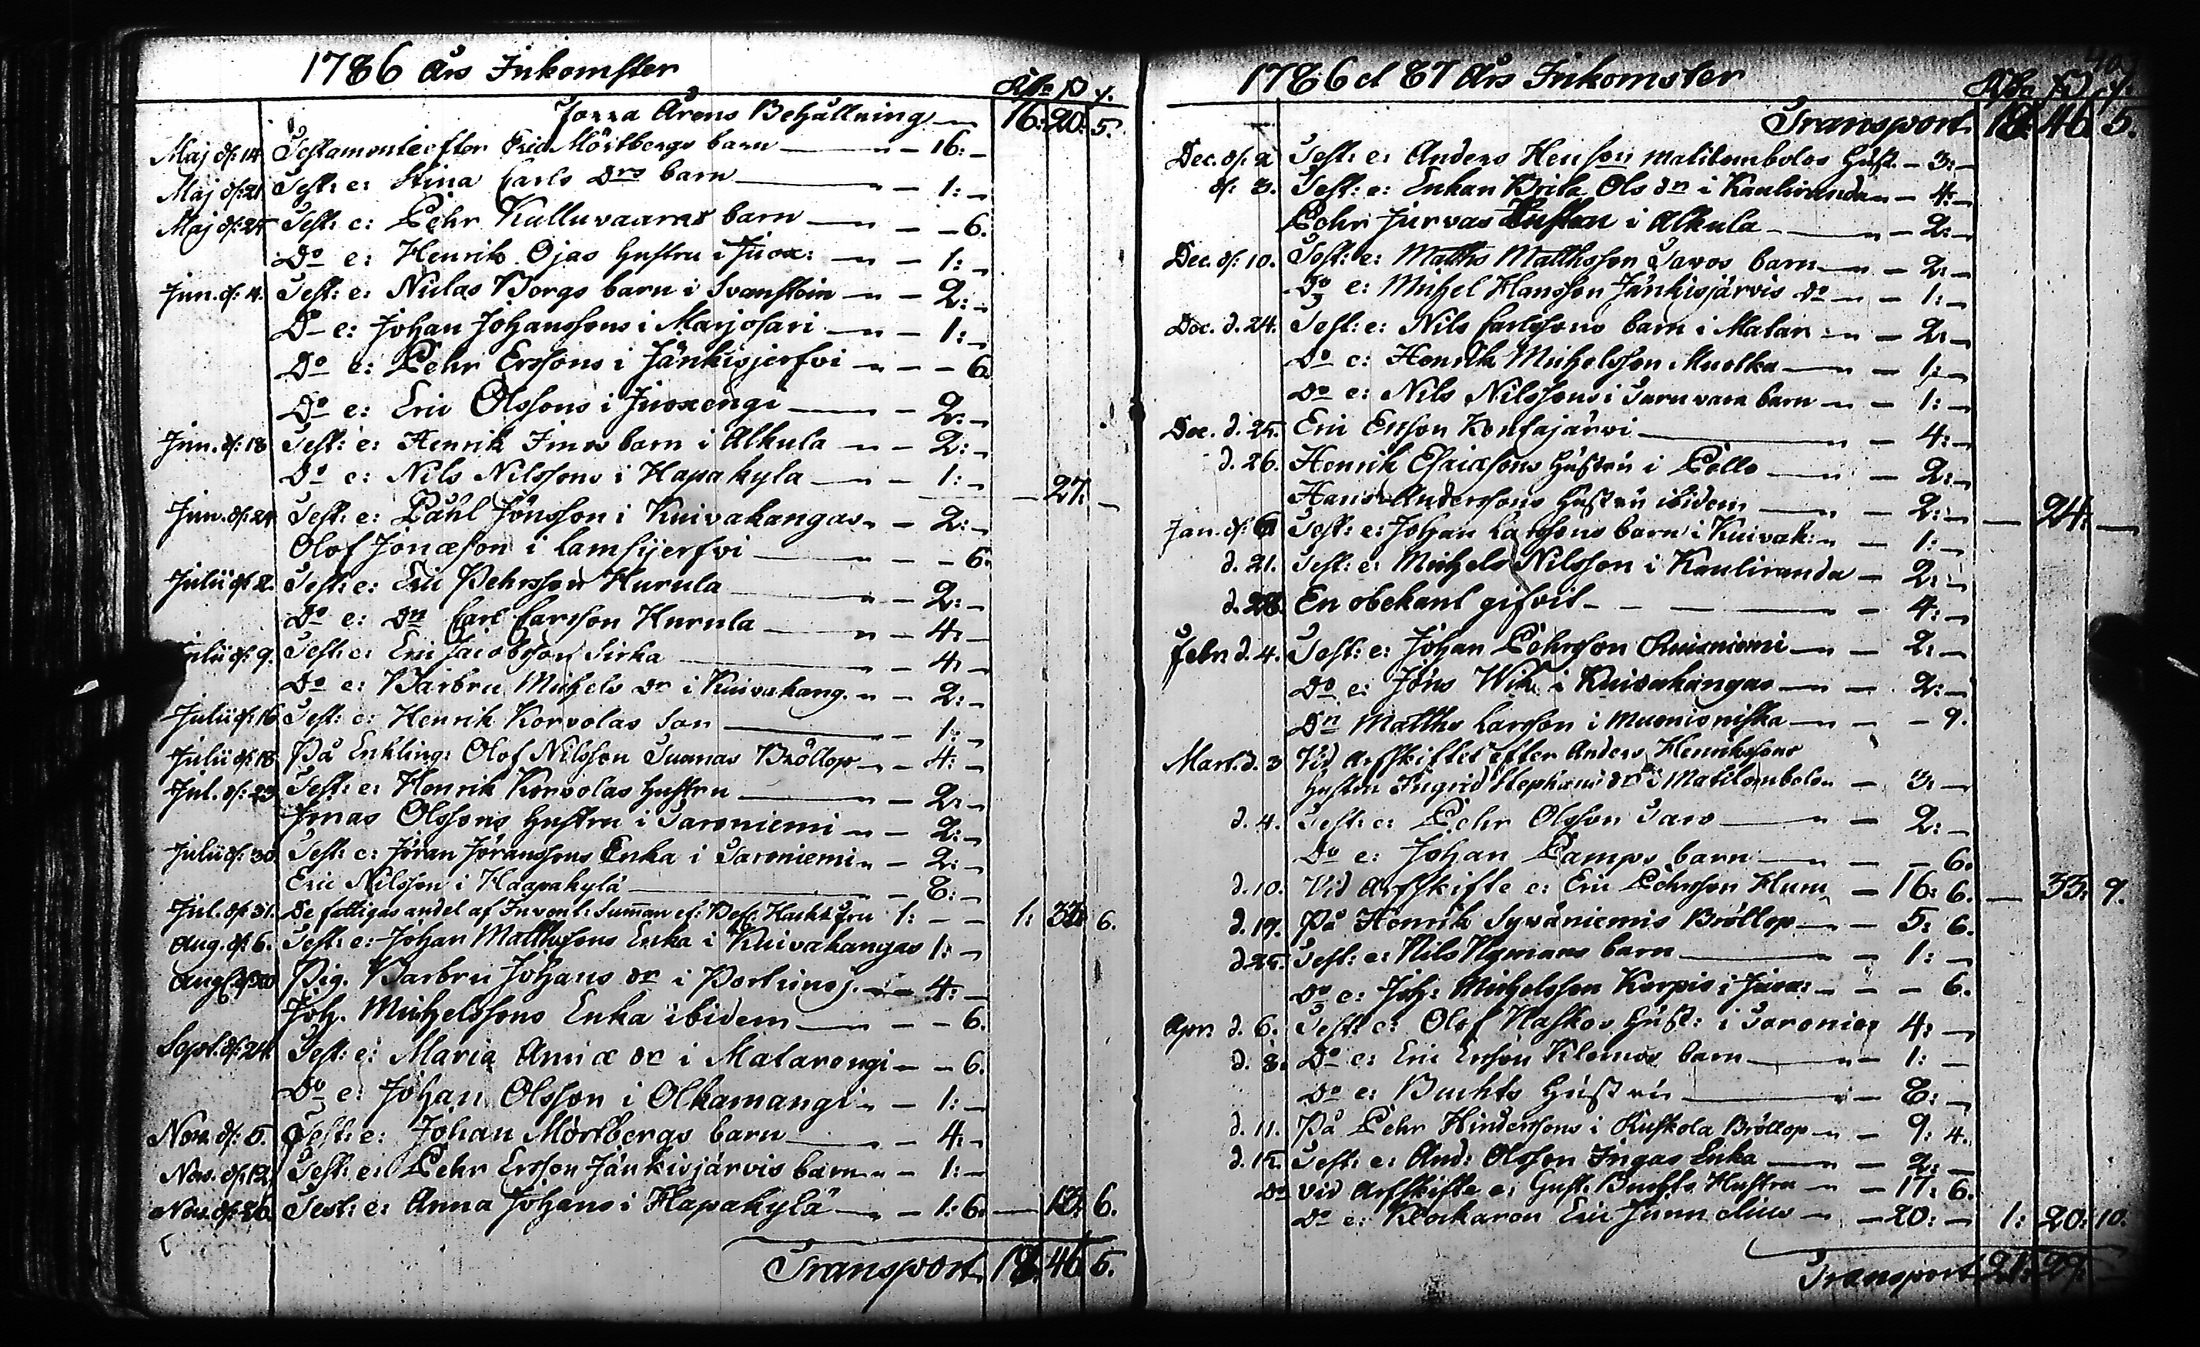 1786 Års Inkomster
Rdr ß r.
Förra Årens Behållning — 16: 20: 5.
Maj d: 14. Testamente efter Eric Mörtbergs barn — 16: —
Maj d: 21. Test: e: Stina Carls Drs barn — 1: —
Maj d: 25 Test: e: Pehr Kulluvaaras barn — 6.
Do e: Henrik Ojas hustru i Juox: — 1: —
Jun. d: 4. Test: e: Niclas Borgs barn i Svanstein — 2: —
Do e: Johan Johanssons i Marjosari — 1: —
Do e: Pehr Erssons i Jänkisjerfvi — 6.
Do e: Eric Olssons i Juoxengi — 2: —
Jun. d: 18 Test: e: Henrik Finos barn i Alkula — 2: —
Do e: Nils Nilssons i Hapakyla — 1: — — 27: —
Jun. d: 24 Test: e: Påhl Jönsson i Kuivakangas — 2: —
Olof Jonæson i Lamsijerfvi — 6.
Julii d: 2. Test: e: Eric Pehrsson Hurula — 2: —
Do e: Dn Carl Carlsson Hurula — 4: —
Julii d: 9. Test: e: Eric Jacobsson Sirka — 4: —
Do e: Barbru Michels dr i Kuivakang. — 2: —
Julii d: 16 Test: e: Henrik Korvolas son — 1: —
Julii d: 18 På Enkling: Olof Nilsson Tuomas Bröllop — 4: —
Jul. d: 23 Test: e: Henrik Korvolas hustru — 2: —
Jonas Olssons hustru i Taroniemi — 2: —
Julii d: 30 Test: e: Jöran Jöranssons Enka i Taroniemi — 2: —
Eric Nilsson i Haapakylä — 8: —
Jul. d: 31. De fattigas andel af Invent: Summan ef: Bef: Hackzs fru 1: — — 1: 6.
Aug. d: 6. Test: e: Johan Matthssons Enka i Kuivakangas 1: —
Aug. d: 20 Pig. Barbru Johans dr i Portimoj. — 4: —
Joh. Michelssons Enka ibidem — 6.
Sept. d: 24. Test: e: Maria Annæ dr i Matarengi — 6.
Do e: Johan Olsson i Olkamangi — 1: —
Nov. d: 5. Test: e: Johan Mörtbergs barn — 4: —
Nov. d: 12. Test: e: Pehr Ersson Jänkisjärvis barn — 1: —
Nov. d: 26. Test: e: Anna Johans i Hapakylä — 1: 6. — 6.
Transport 46 5.
1786 d 87 Års Inkomster
Rdr ß r:
Transport 46. 5.
Dec. d: 2 Test: e: Anders Henson Matilombolos hust. — 3: —
d: 3. Test: e: Enkan Brita Ols dr i Kauliranda — 4: —
Pehr Jurvas Hustru i Alkula — 2: —
Dec. d: 10. Test: e: Matths Matthsson Tavos barn — 2: —
Do e: Michel Hansson Jänkisjärvis do — 1: —
Dec. d. 24. Test: e: Nils Carlssons barn i Matar — 2: —
Do e: Henrik Michelsson Muotka — 1: —
Do e: Nils Nilssons i Saruvara barn — 1: —
Dec. d. 25. Eric Ersson Konsajärvi — 4: —
d. 26. Henrik Esaiæsons hustru i Pello — 2: —
Hans Anderssons hustru ibidem — 2: — — 24: —
Jan. d: 6 Test: e: Johan Larssons barn i Kuivak: — 1: —
d. 21. Test: e: Michels Nilsson i Kauliranda — 2: —
d. 28. En obekant gifvit — 4: —
Febr. d. 4. Test: e: Johan Pehrsson Ruisniemi — 2: —
Do e: Jöns Wik i Kuivakangas — 2: —
Dn Matths Larsson i Muonioniska — 9.
Mart. d. 3 Vid Arfskiftet efter Anders Henrikssons
hustru Ingrid Stephans dr i Matilombolo — 3: —
d. 4. Test: e: Pehr Olsson Taro — 2: —
Do e: Johan Lamps barn — 6.
d. 10. Vid Arfskifte e: Eric Pehrsson Hum — 16: 6. — 33: 9.
d. 19. På Henrik Syväniemis Bröllop — 5: 6.
d. 25. Test: e: Nils Nymans barn — 1: —
Do e: Joh: Michelsson Karpis i Juox: — 6.
Apr. d. 6. Test: e: Olof Naskos hust: i Taronie: 4: —
d. 8. Do e: Eric Ersson Klemos barn — 1: —
Do e: Buchts hustru — 8: —
d. 11. På Pehr Hinderssons i Ruskola Bröllop — 9: 4.
d. 15. Test: e: And: Olsson Ingas Enka — 2: —
Do Vid Arfskifte e: Gust: Buchts Hustru — 17: 6.
Do e: Klockaren Eric Junnelius — 20: — 1: 20: 10.
Transport 21: 29: —